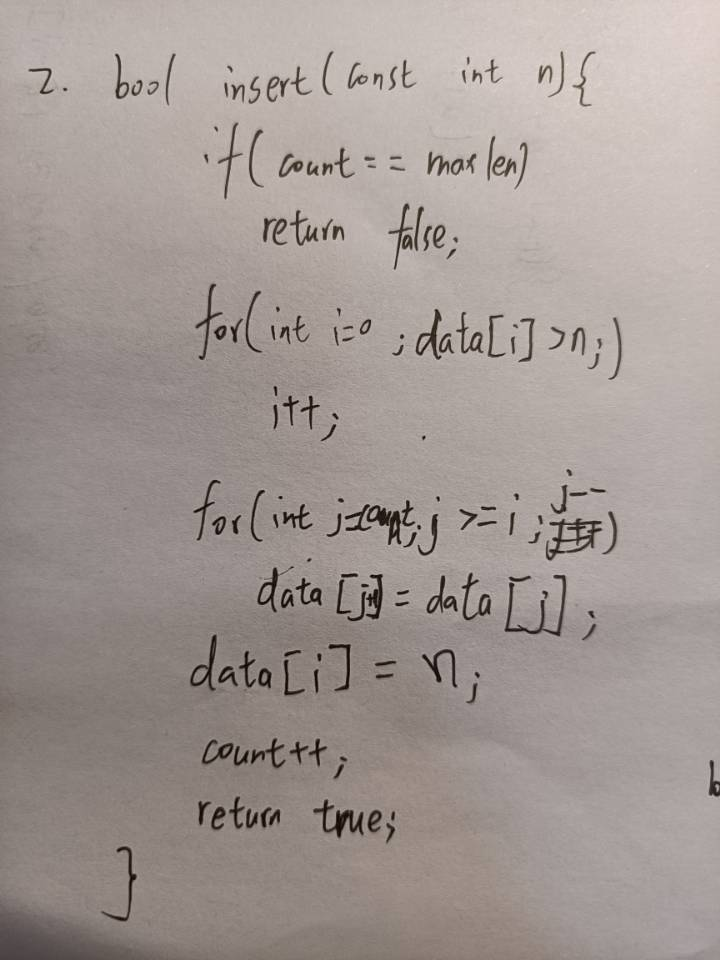 2. bool insert(const int n){
if(count == maxlen)
return false;
for(int i=0 ; data[i] >n;)
i++;
for(int j=count; j >= i ; j--)
data [j+1] = data [j];
data [i] = n;
count++;
return true;
}